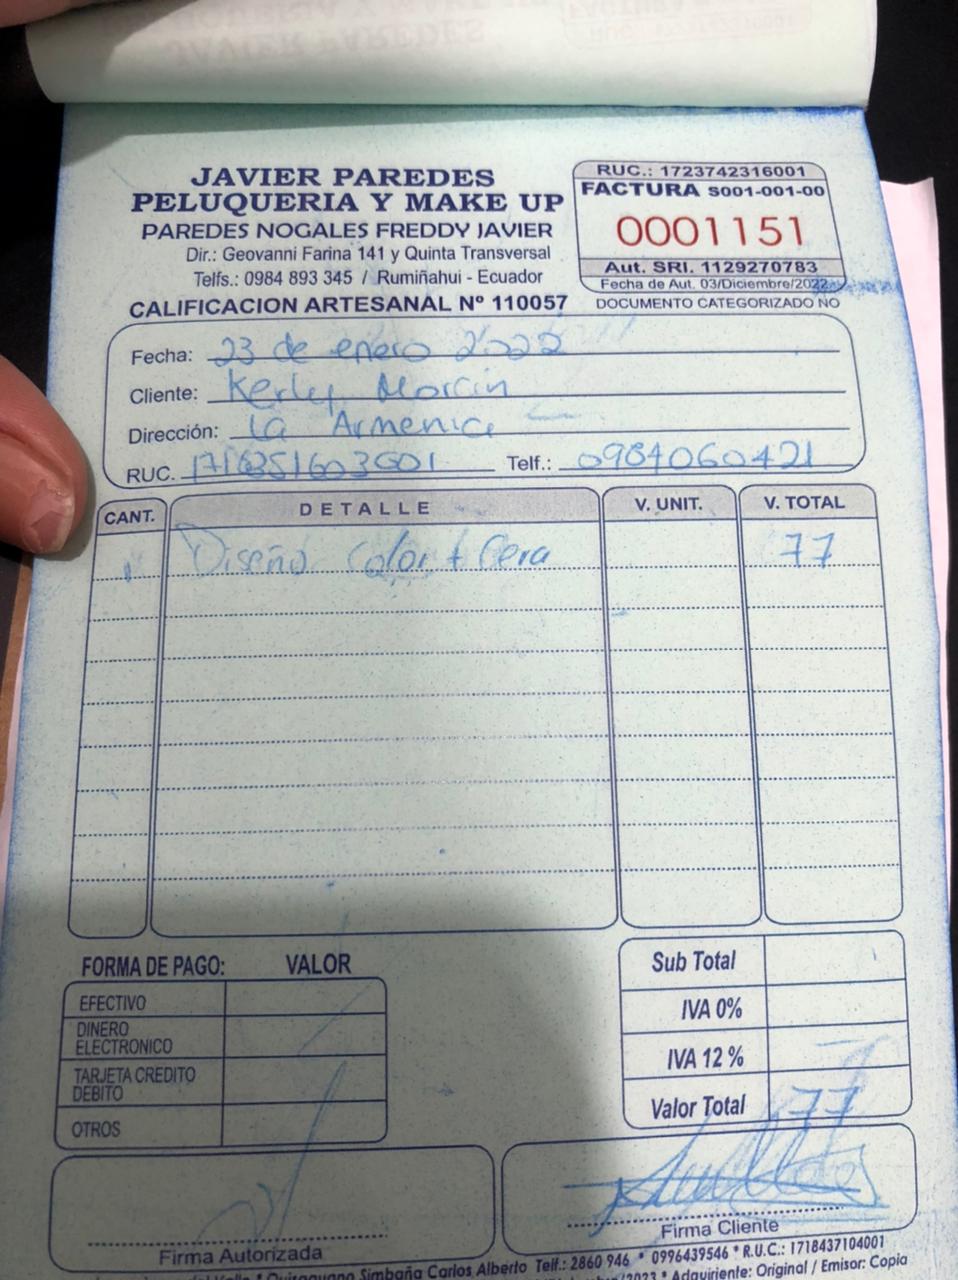 JAVIER PAREDES
PELUQUERIA Y MAKE UP
PAREDES NOGALES FREDDY JAVIER
Dir.: Geovanni Farina 141 y Quinta Transversal
Telfs.: 0984 893 345 / Rumiñahui - Ecuador
CALIFICACION ARTESANAL Nº 110057
RUC.: 1723742316001
FACTURA S001-001-00
0001151
Aut. SRI. 1129270783
Fecha de Aut. 03/Diciembre/2022
DOCUMENTO CATEGORIZADO NO
Fecha: 23 de enero 2022
Cliente: Kerly
Dirección: La Armenia
RUC. 1716351603001 Telf.: 0984060421
CANT. DETALLE V. UNIT. V. TOTAL
1 Diseño Color + Cera 77
FORMA DE PAGO: VALOR
EFECTIVO
DINERO
ELECTRONICO
TARJETA CREDITO
DEBITO
OTROS
Sub Total
IVA 0%
IVA 12 %
Valor Total 77
Firma Autorizada
Firma Cliente
Simbaña Carlos Alberto Telf.: 2860 946 * 0996439546 * R.U.C.: 1718437104001
/2023 * Adquiriente: Original / Emisor: Copia